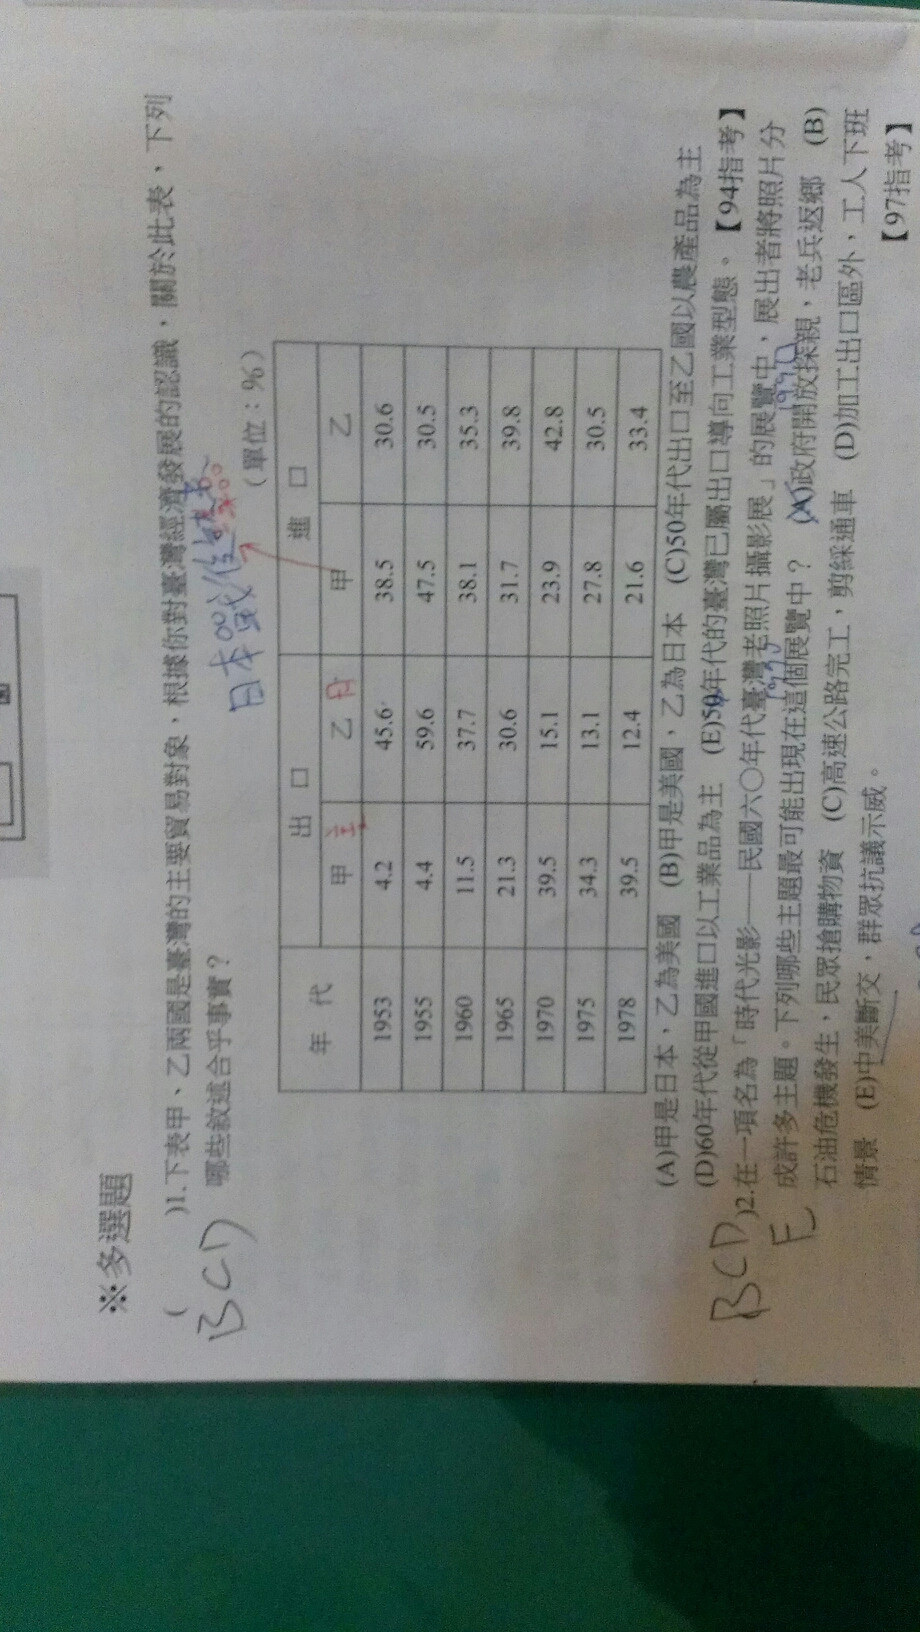 ※多選題
(
)1.下表甲、乙兩國是臺灣的主要貿易對象,根據你對臺灣經濟發展的認識,關於此表,下列
BCD
哪些敘述合乎事實?
日本戰
(單位:%)
年 代 出 口 進 口
甲 美 乙 日 甲 乙
1953 4.2 45.6 38.5 30.6
1955 4.4 59.6 47.5 30.5
1960 11.5 37.7 38.1 35.3
1965 21.3 30.6 31.7 39.8
1970 39.5 15.1 23.9 42.8
1975 34.3 13.1 27.8 30.5
1978 39.5 12.4 21.6 33.4
(A)甲是日本,乙為美國 (B)甲是美國,乙為日本 (C)50年代出口至乙國以農產品為主
(D)60年代從甲國進口以工業品為主 (E)50年代的臺灣已屬出口導向工業型態。【94指考】
BCD
E
)2.在一項名為「時代光影──民國六○年代臺灣老照片攝影展」的展覽中,展出者將照片分
成許多主題。下列哪些主題最可能出現在這個展覽中? (A)政府開放探親,老兵返鄉 (B)
石油危機發生,民眾搶購物資 (C)高速公路完工,剪綵通車 (D)加工出口區外,工人下班
情景 (E)中美斷交,群眾抗議示威。
【97指考】